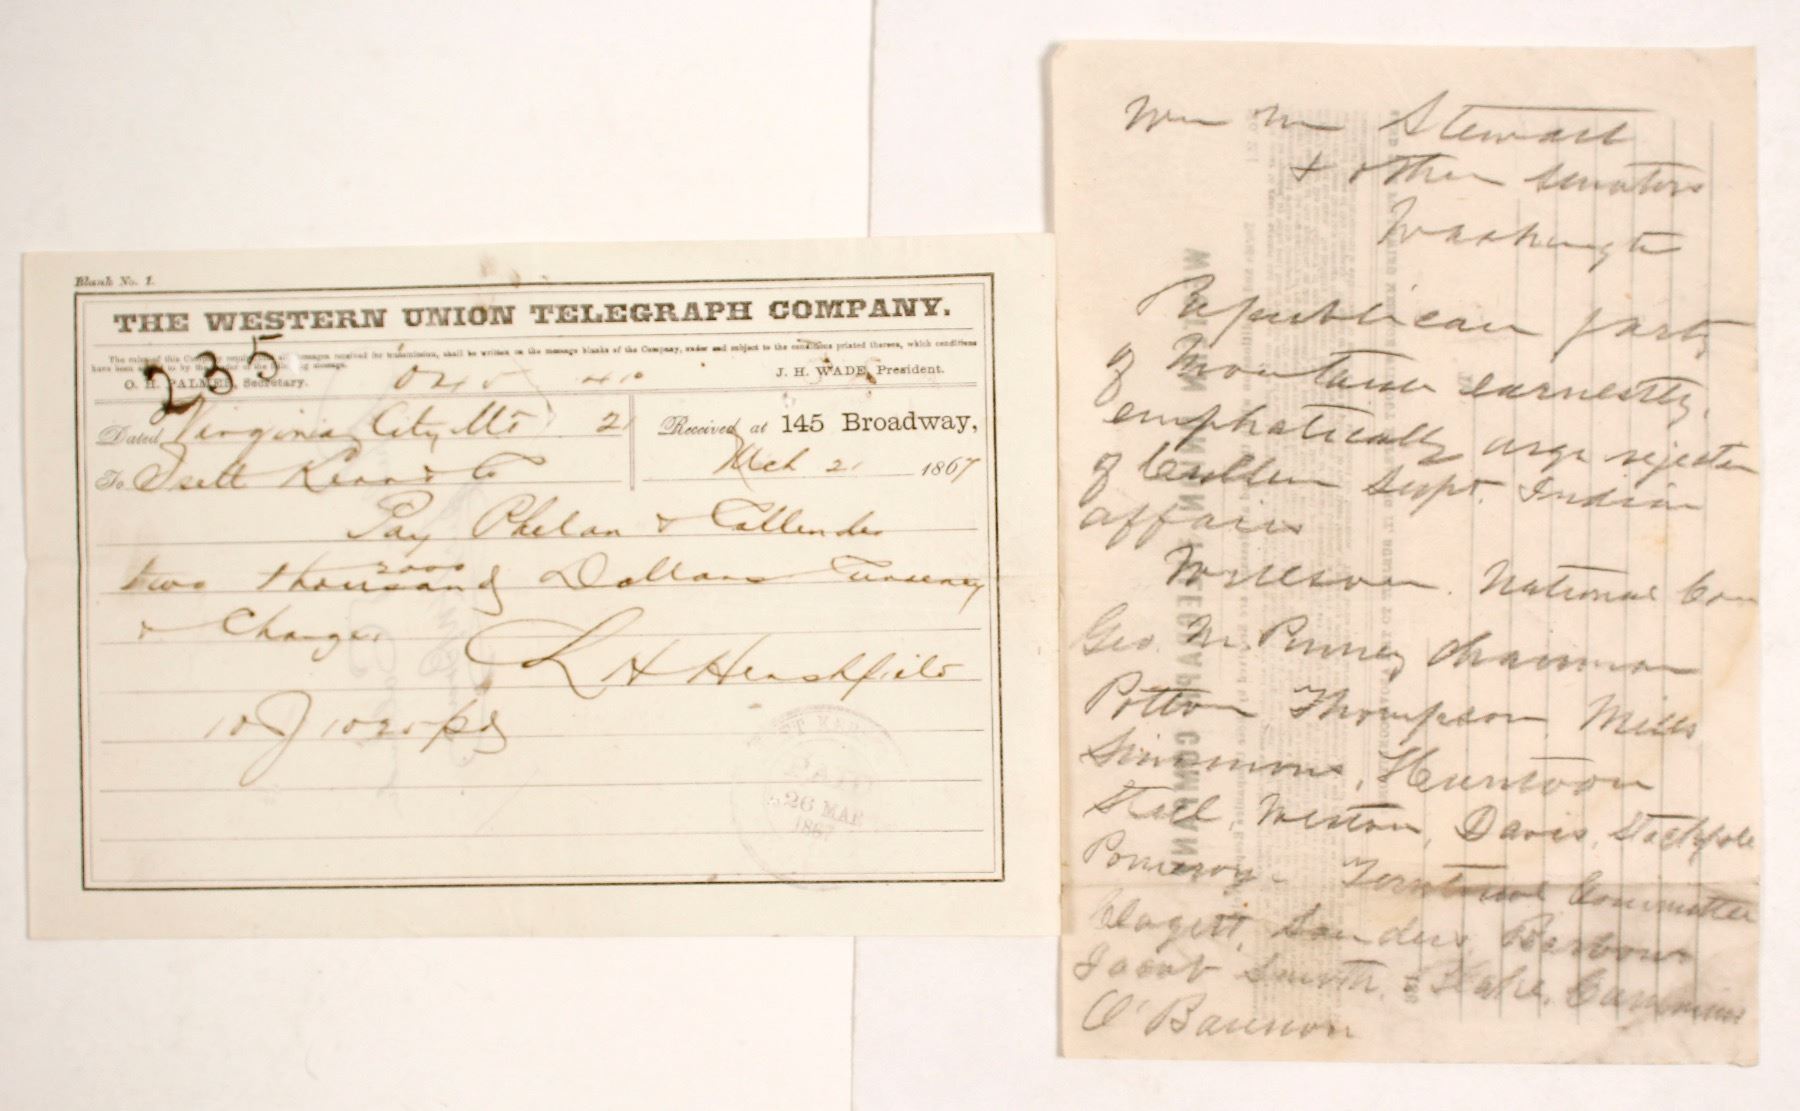 Blank No. 1.
THE WESTERN UNION TELEGRAPH COMPANY.
The rules of this Company require that all messages received for transmission, shall be written on the message blanks of the Company, under and subject to the conditions printed thereon, which conditions
have been agreed to by the sender of the following message.
235
O. H. PALMER, Secretary.
J. H. WADE, President.
Dated Virginia City Mt 21
Received at 145 Broadway,
To Isett Kerr & Co
Mch 21 1867
Pay Phelan & Callender
2000
two thousand Dollars Currency
& Charge.
L H Hershfield
10 J 1025 pd
PAID
26 MAR
1867
Wm M Stewart
& other senators
Washingtn
Republican party
of Montana earnestly,
emphatically urge rejection
of Cullen Supt. Indian
affairs
Wilson. National Com
Geo. M. Pinney Chairman
Potton Thompson, Mills
Simmons, Huntoon
Steel, Weston, Davis, Stackpole
Pomeroy - Territorial Committee
Clagett, Sanders, Barbour
Jacob Smith, Blake, Cummins
O'Bannon